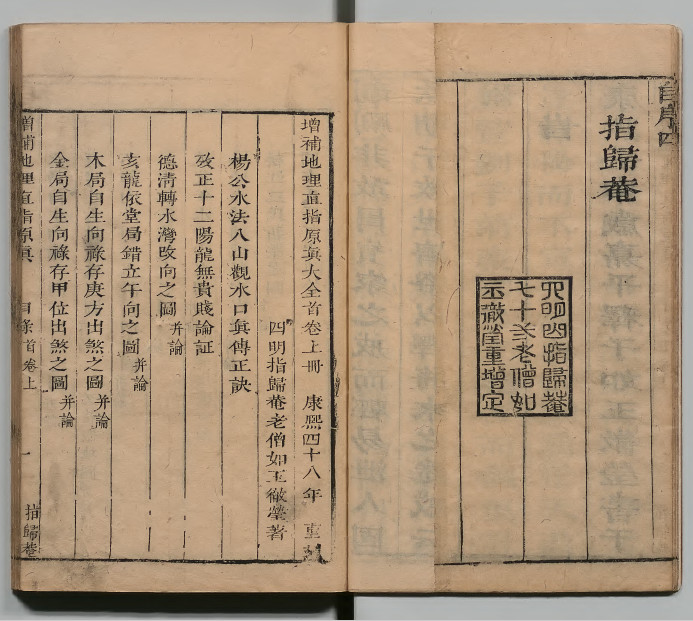 自序四
指歸菴
四明四指歸菴
七十三老僧如
玉徹瑩重增定
增補地理直指原真大全首卷上冊 康熙四十八年 重
四明指歸菴老僧如玉徹瑩著
楊公水法八山觀水口真傳正訣
攷正十二陽龍無貴賤論証
德清轉水灣改向之圖 并論
亥龍依堂局錯立午向之圖 并論
木局自生向祿存庚方出煞之圖 并論
金局自生向祿存甲位出煞之圖 并論
增補地理直指原真 目錄 首卷上 一 指歸菴